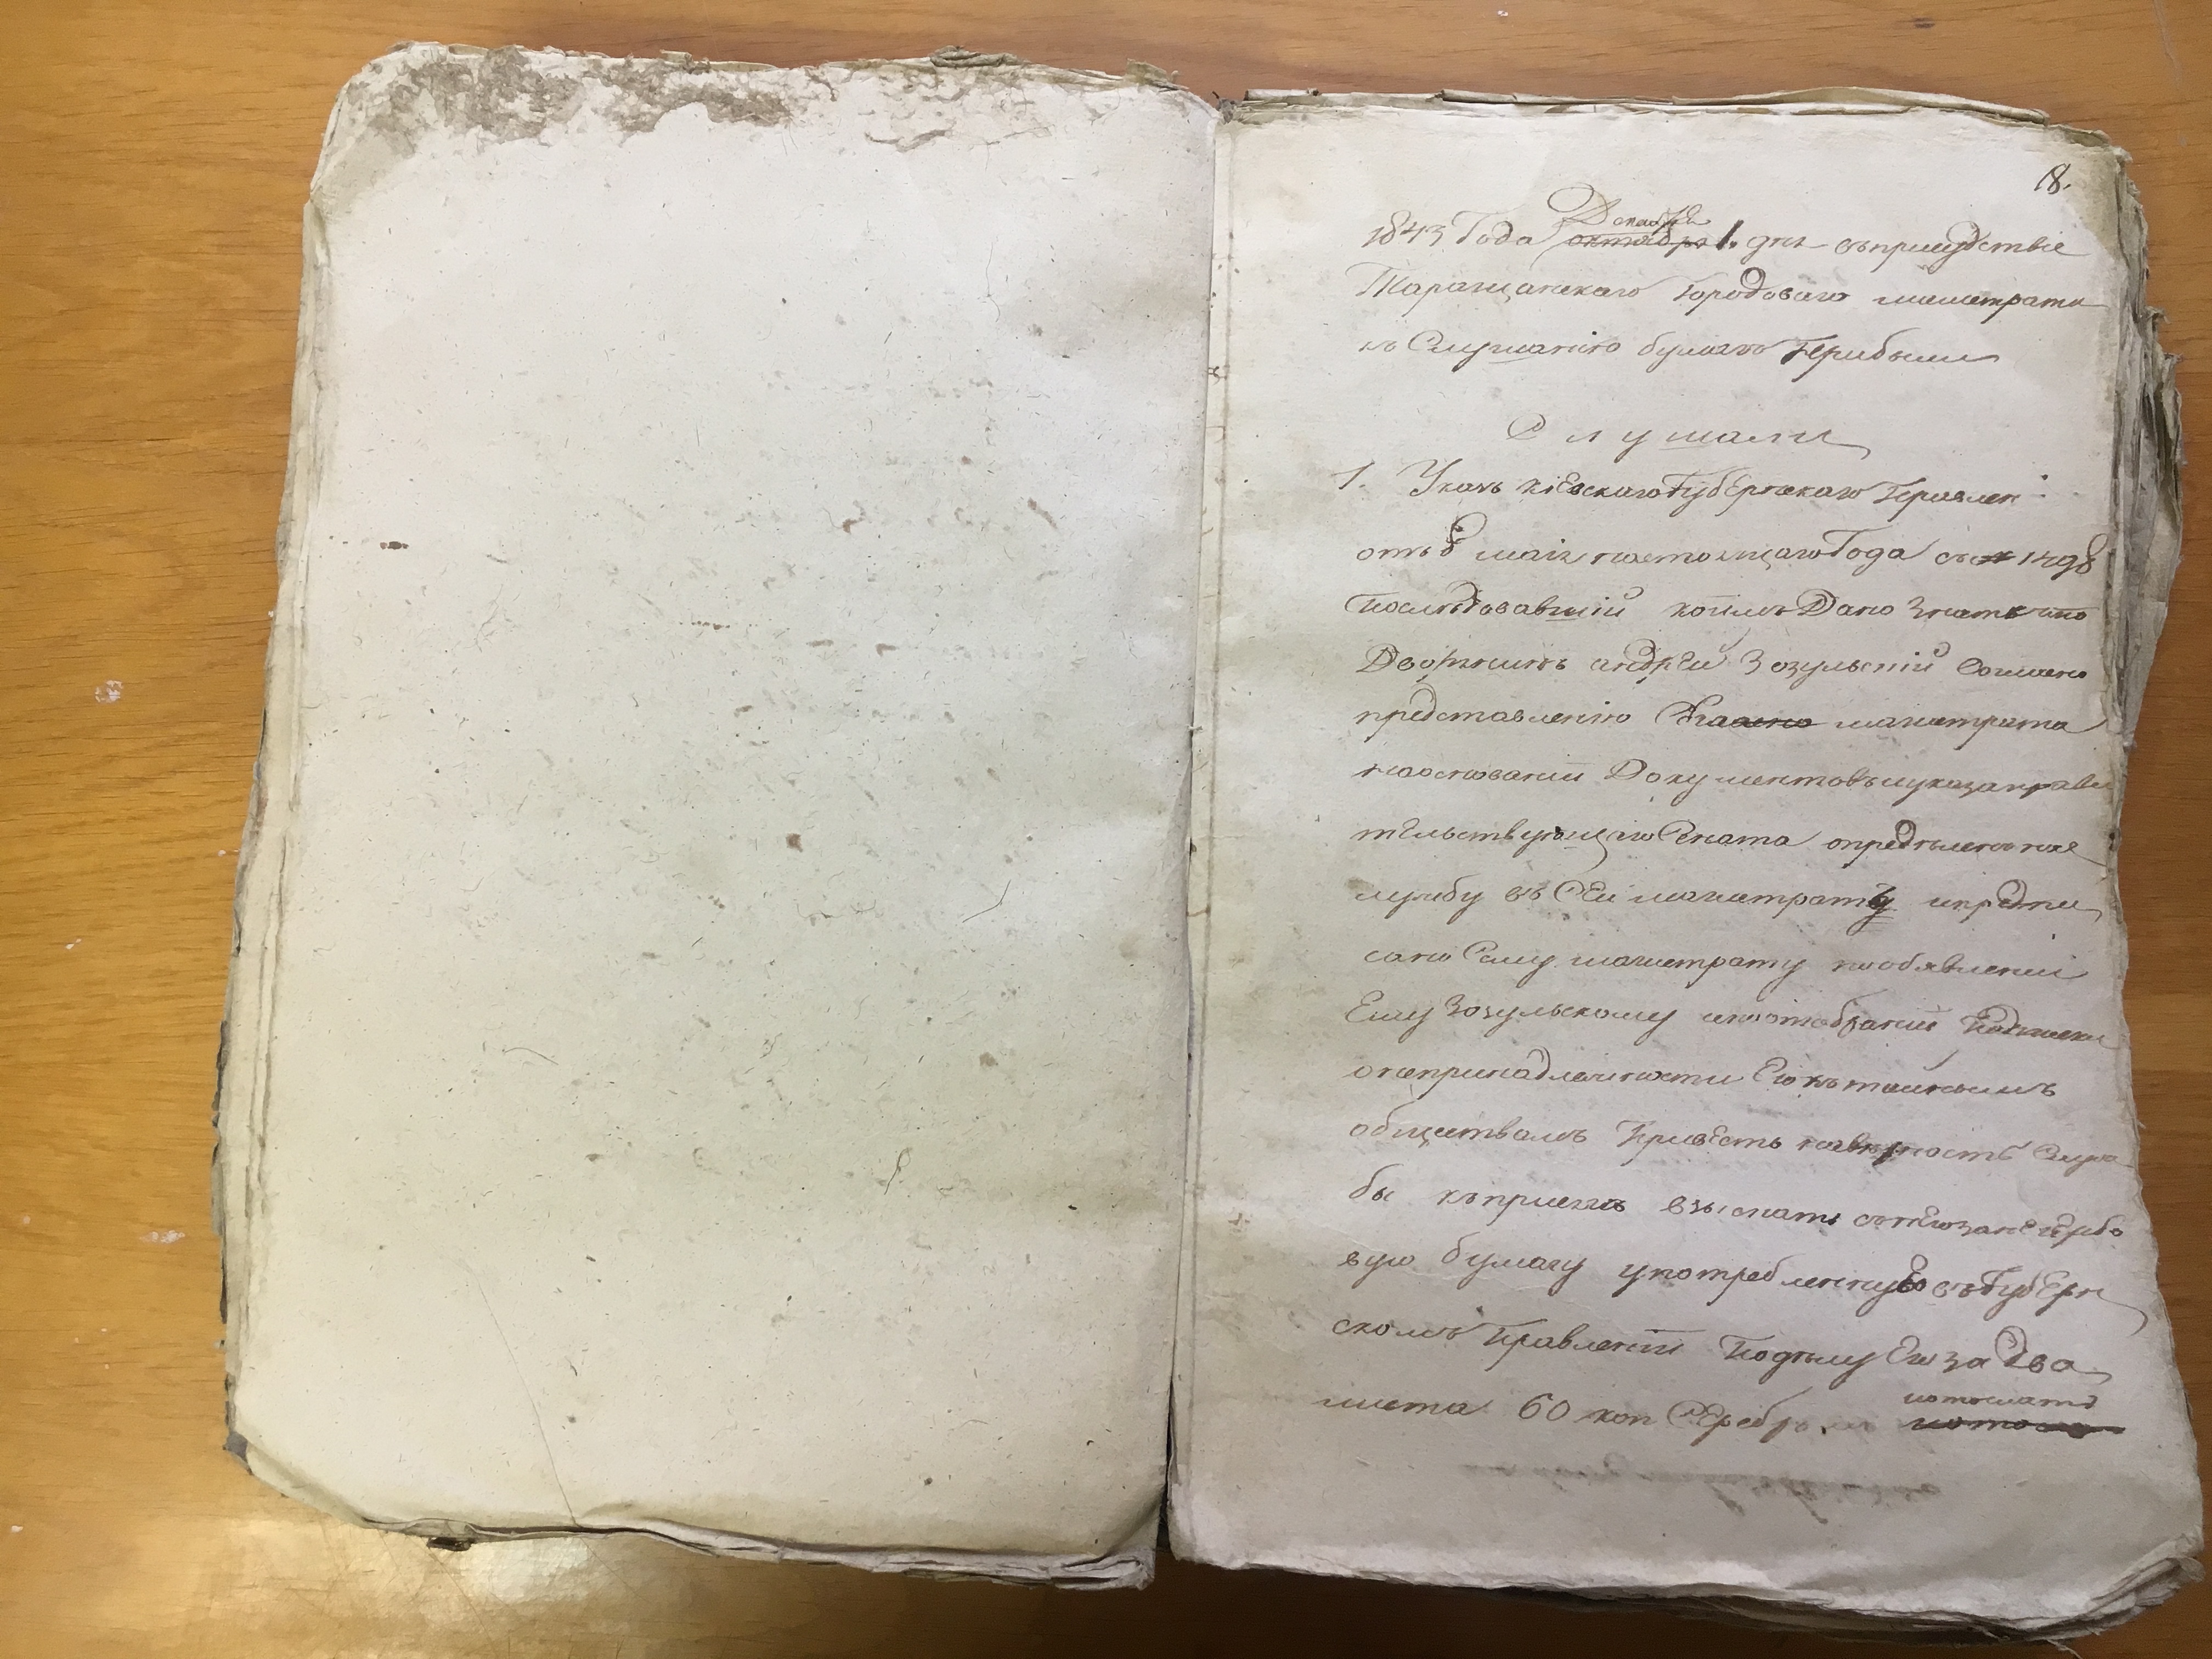 18.
Декабря
1843 Года октабря 1. дня въ присудствіе
Таращанскаго Городоваго магистрата
къ Слушанію бумагъ Прибыли
Слушали
1. Указъ кіевскаго Губернскаго Правлен:
отъ 8 маія настоящаго Года съ № 1498
Последовавшій коимъ Дано Знать что
Дворянинъ андрей Зозульскій Согласно
представленію магистрата
наоснованіи Документовъ иуказа прави
тельствующаго Сената определенъ на
службу въ Сей магистратъ ипредпи
сано Сему магистрату пообявленіи
Ему Зозульскому ипоотобраніи Подписки
онепринадлежности Его къ тайнымъ
обществамъ Привесть наверность Служ
бы къ присяге взыскать снего за негербо
вую бумагу употребленную въ Губерн
скомъ Правленіи Поделу Его за Два
листа 60 коп Серебромъ
иотослать